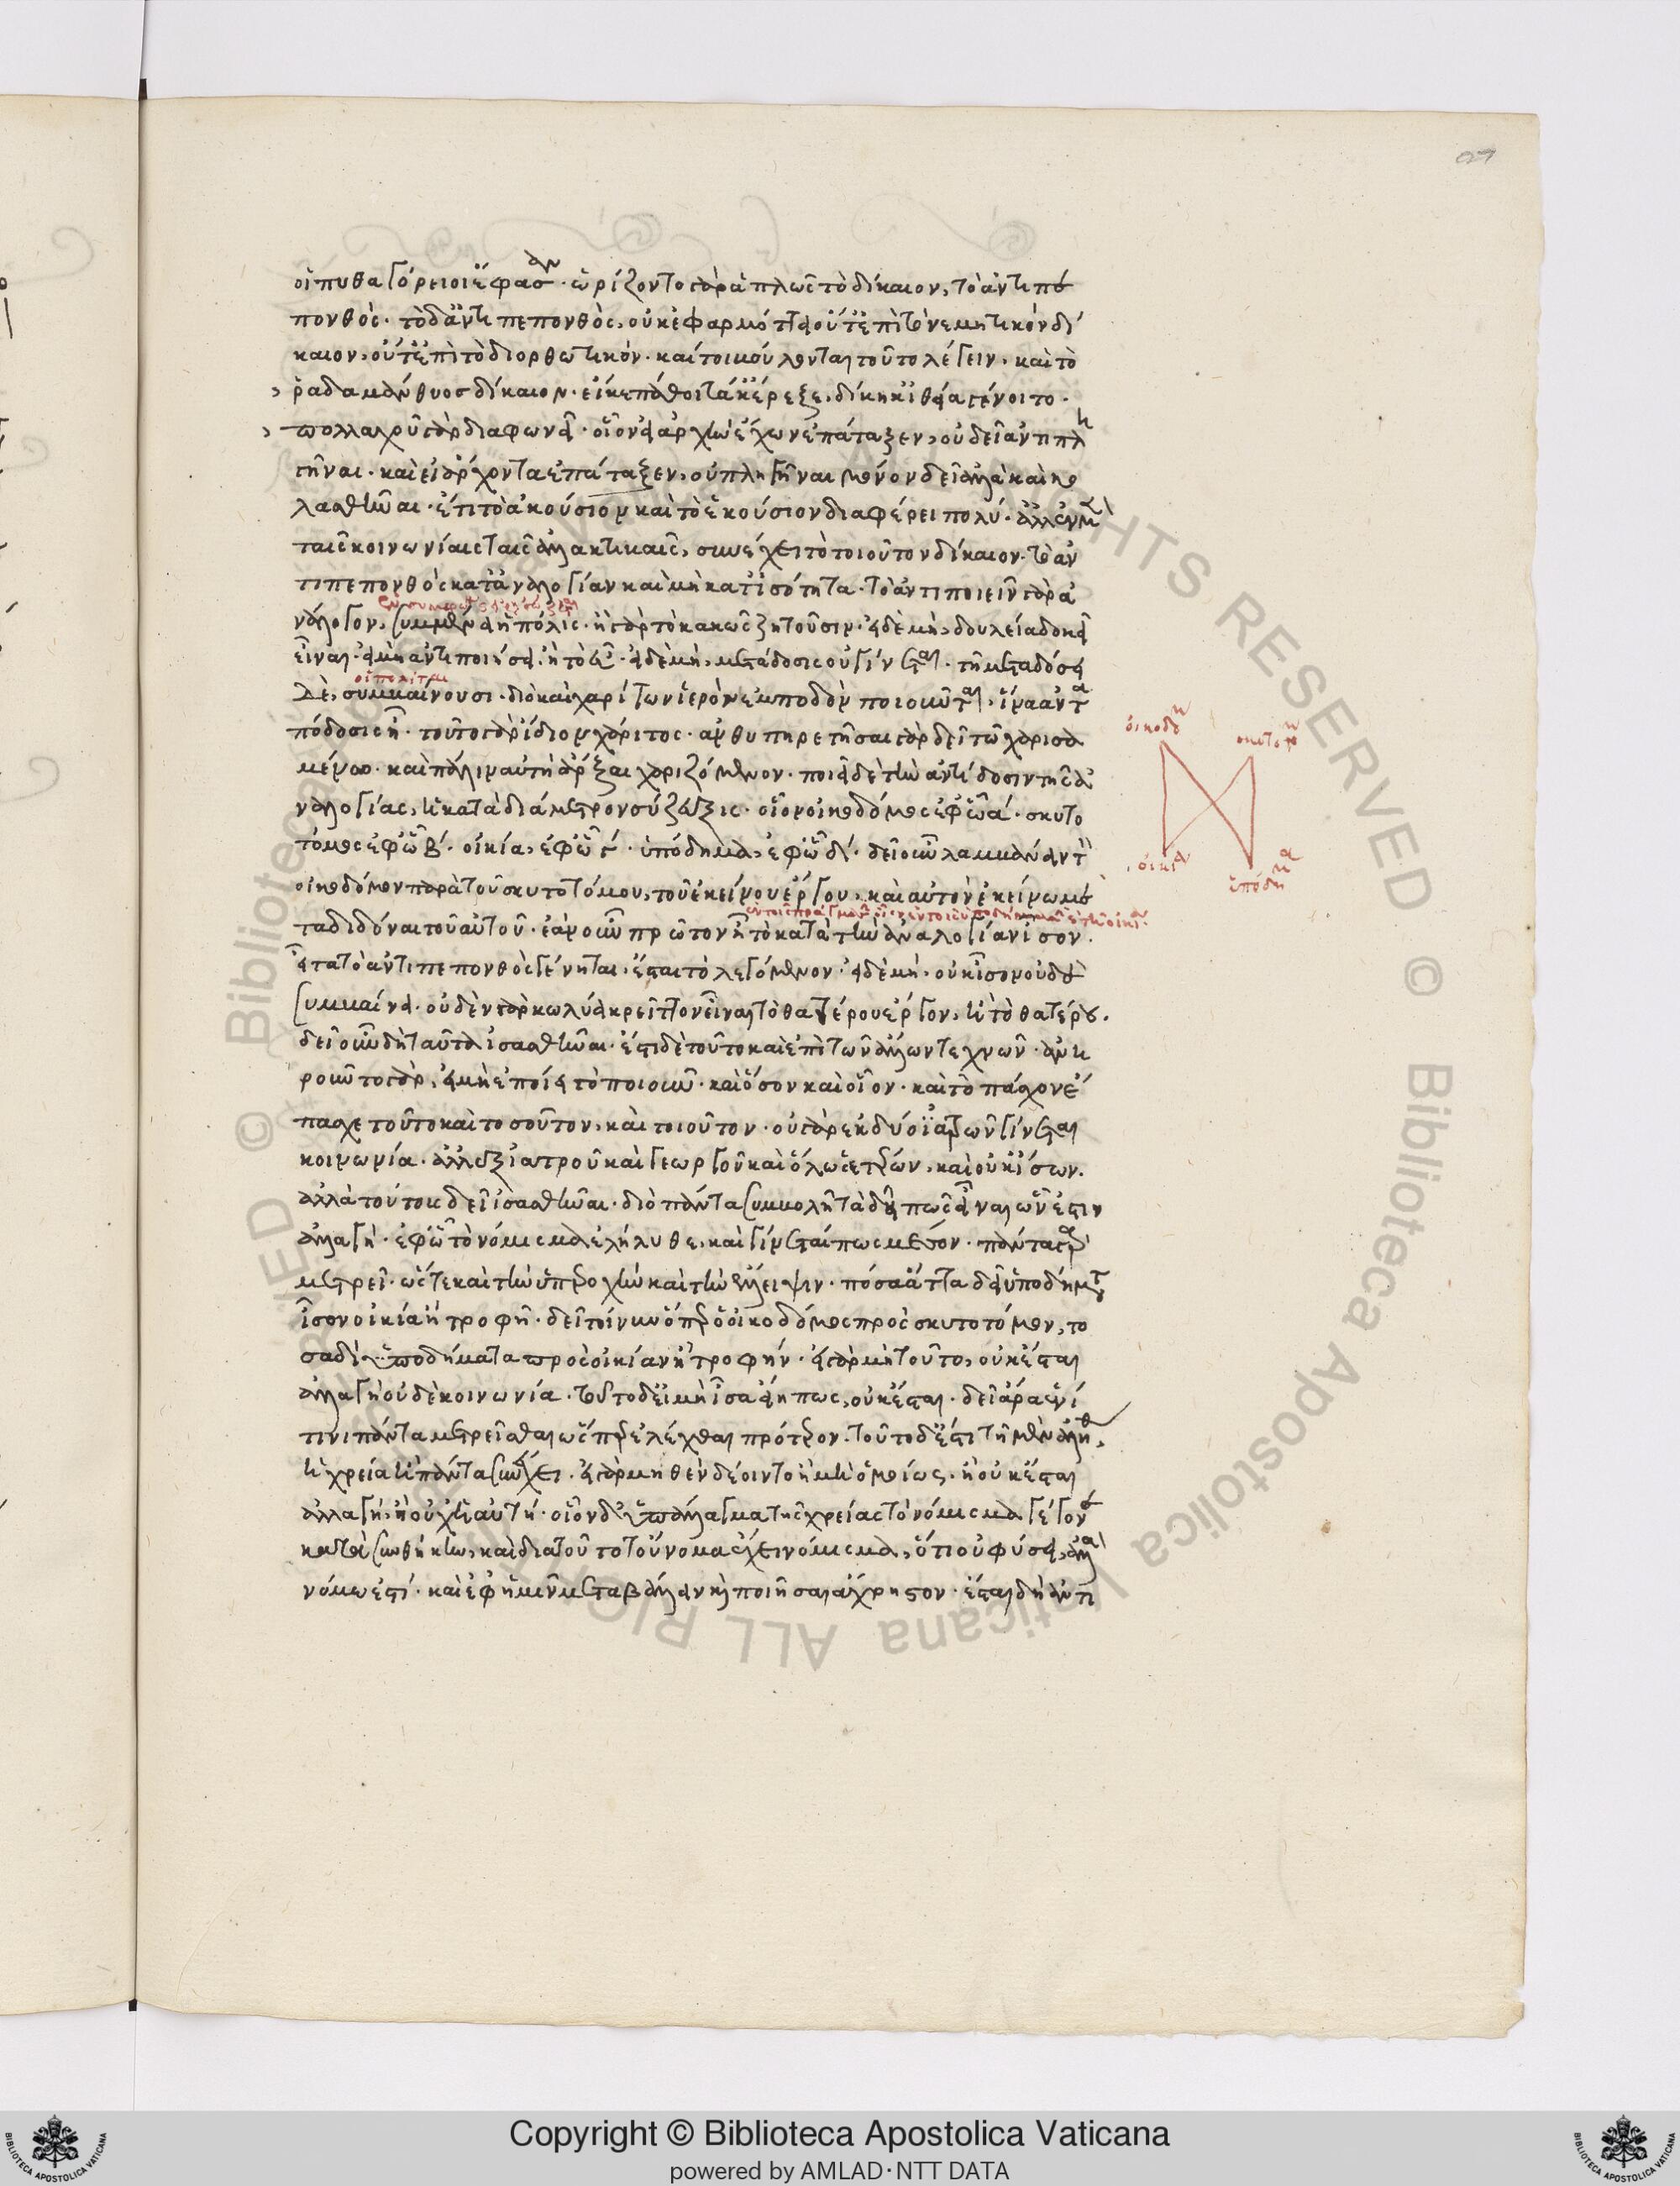 οἱ πυθαγόρειοι ἔφασαν· ὡρίζοντο γὰρ ἁπλῶς τὸ δίκαιον, τὸ ἀντιπε
πονθός· τὸ δ' ἀντιπεπονθός, οὐκ ἐφαρμόττει οὔτ' ἐπὶ τὸ νεμητικὸν δί
καιον, οὔτ' ἐπὶ τὸ διορθωτικόν· καίτοι βούλονται τοῦτο λέγειν, καὶ τὸ
ῥαδαμάνθυος δίκαιον· εἴ κε πάθοι τά κ' ἔρεξε, δίκη κ' ἰθεῖα γένοιτο·
πολλαχοῦ γὰρ διαφωνεῖ· οἷον εἰ ἀρχὴν ἔχων ἐπάταξεν, οὐ δεῖ ἀντιπλη
γῆναι· καὶ εἰ ἄρχοντα ἐπάταξεν, οὐ πληγῆναι μόνον δεῖ ἀλλὰ καὶ κο
λασθῆναι· ἔτι τὸ ἀκούσιον καὶ τὸ ἑκούσιον διαφέρει πολύ· ἀλλ' ἐν μὲν
ταῖς κοινωνίαις ταῖς ἀλλακτικαῖς, συνέχει τὸ τοιοῦτον δίκαιον· τὸ ἀν
τιπεπονθὸς κατ' ἀναλογίαν καὶ μὴ κατ' ἰσότητα· τὸ ἀντιποιεῖν γὰρ ἀ
νάλογον, συμμένει ἡ πόλις· ἢ γὰρ τὸ κακῶς ζητοῦσιν· εἰ δὲ μή, δουλεία δοκεῖ
εἶναι· εἰ μὴ ἀντιποιήσει· ἢ τὸ εὖ· εἰ δὲ μή, μετάδοσις οὐ γίνεται· τῇ μεταδόσει
οἱ πολῖται
δὲ, συμμένουσι· διὸ καὶ χαρίτων ἱερὸν ἐμποδὼν ποιοῦνται, ἵνα ἀντα
πόδοσις ᾖ· τοῦτο γὰρ ἴδιον χάριτος· ἀνθυπηρετῆσαι γὰρ δεῖ τῷ χαρισα
μένῳ· καὶ πάλιν αὐτὴ ἄρξαι χαριζόμενον· ποιεῖ δὲ τὴν ἀντίδοσιν τῆς ἀ
ναλογίας, ἡ κατὰ διάμετρον σύζευξις· οἷον οἰκοδόμος ἐφ' ᾧ α· σκυτο
τόμος ἐφ' ᾧ β· οἰκία, ἐφ' ᾧ γ· ὑπόδημα, ἐφ' ᾧ δ· δεῖ οὖν λαμβάνειν τὸν
οἰκοδόμον παρὰ τοῦ σκυτοτόμου, τοῦ ἐκείνου ἔργου, καὶ αὐτὸν ἐκείνῳ με
ταδιδόναι τοῦ αὑτοῦ· ἐὰν οὖν πρῶτον ᾖ τὸ κατὰ τὴν ἀναλογίαν ἴσον·
εἶτα τὸ ἀντιπεπονθὸς γένηται, ἔσται τὸ λεγόμενον· εἰ δὲ μή, οὐκ ἴσον οὐδὲ
συμμένει· οὐδὲν γὰρ κωλύει κρεῖττον εἶναι τὸ θατέρου ἔργον, ἢ τὸ θατέρου·
δεῖ οὖν δὴ ταῦτα ἰσασθῆναι· ἔστι δὲ τοῦτο καὶ ἐπὶ τῶν ἄλλων τεχνῶν· ἀνῃ
ροῦντο γὰρ, εἰ μὴ ἐποίει τὸ ποιοῦν· καὶ ὅσον καὶ οἷον· καὶ τὸ πάσχον ἔ
πασχε τοῦτο καὶ τοσοῦτον, καὶ τοιοῦτον· οὐ γὰρ ἐκ δύο ἰατρῶν γίνεται
κοινωνία· ἀλλ' ἐξ ἰατροῦ καὶ γεωργοῦ καὶ ὅλως ἑτέρων, καὶ οὐκ ἴσων·
ἀλλὰ τούτους δεῖ ἰσασθῆναι· διὸ πάντα συμβλητὰ δεῖ πως εἶναι ὧν ἐστιν
ἀλλαγή· ἐφ' ᾧ τὸ νόμισμα ἐλήλυθε, καὶ γίνεταί πως μέσον· πάντα γὰρ
μετρεῖ· ὥστε καὶ τὴν ὑπεροχὴν καὶ τὴν ἔλλειψιν· πόσα ἄττα δεῖ ὑποδήματα
ἴσον οἰκίᾳ ἢ τροφῇ· δεῖ τοίνυν ὅπερ οἰκοδόμος πρὸς σκυτοτόμον, το
σαδὶ ὑποδήματα πρὸς οἰκίαν ἢ τροφήν· εἰ γὰρ μὴ τοῦτο, οὐκ ἔσται
ἀλλαγὴ οὐδὲ κοινωνία· τοῦτο δ' εἰ μὴ ἴσα εἴη πως, οὐκ ἔσται· δεῖ ἄρα ἑνί
τινι πάντα μετρεῖσθαι ὥσπερ ἐλέχθη πρότερον· τοῦτο δ' ἐστὶ τῇ μὲν ἀληθείᾳ,
ἡ χρεία ἣ πάντα συνέχει· εἰ γὰρ μηθὲν δέοιντο ἢ μὴ ὁμοίως, ἢ οὐκ ἔσται
ἀλλαγή, ἢ οὐχ ἡ αὐτή· οἷον δ' ὑπάλλαγμα τῆς χρείας τὸ νόμισμα γέγονε
κατὰ συνθήκην, καὶ διὰ τοῦτο τοὔνομα ἔχει νόμισμα, ὅτι οὐ φύσει, ἀλλὰ
νόμῳ ἐστί· καὶ ἐφ' ἡμῖν μεταβάλλειν καὶ ποιῆσαι ἄχρηστον· ἔσται δὴ ἀντι
οἰκοδόμ
σκυτοτόμ
οἰκία
ὑπόδημα
Copyright © Biblioteca Apostolica Vaticana
powered by AMLAD·NTT DATA